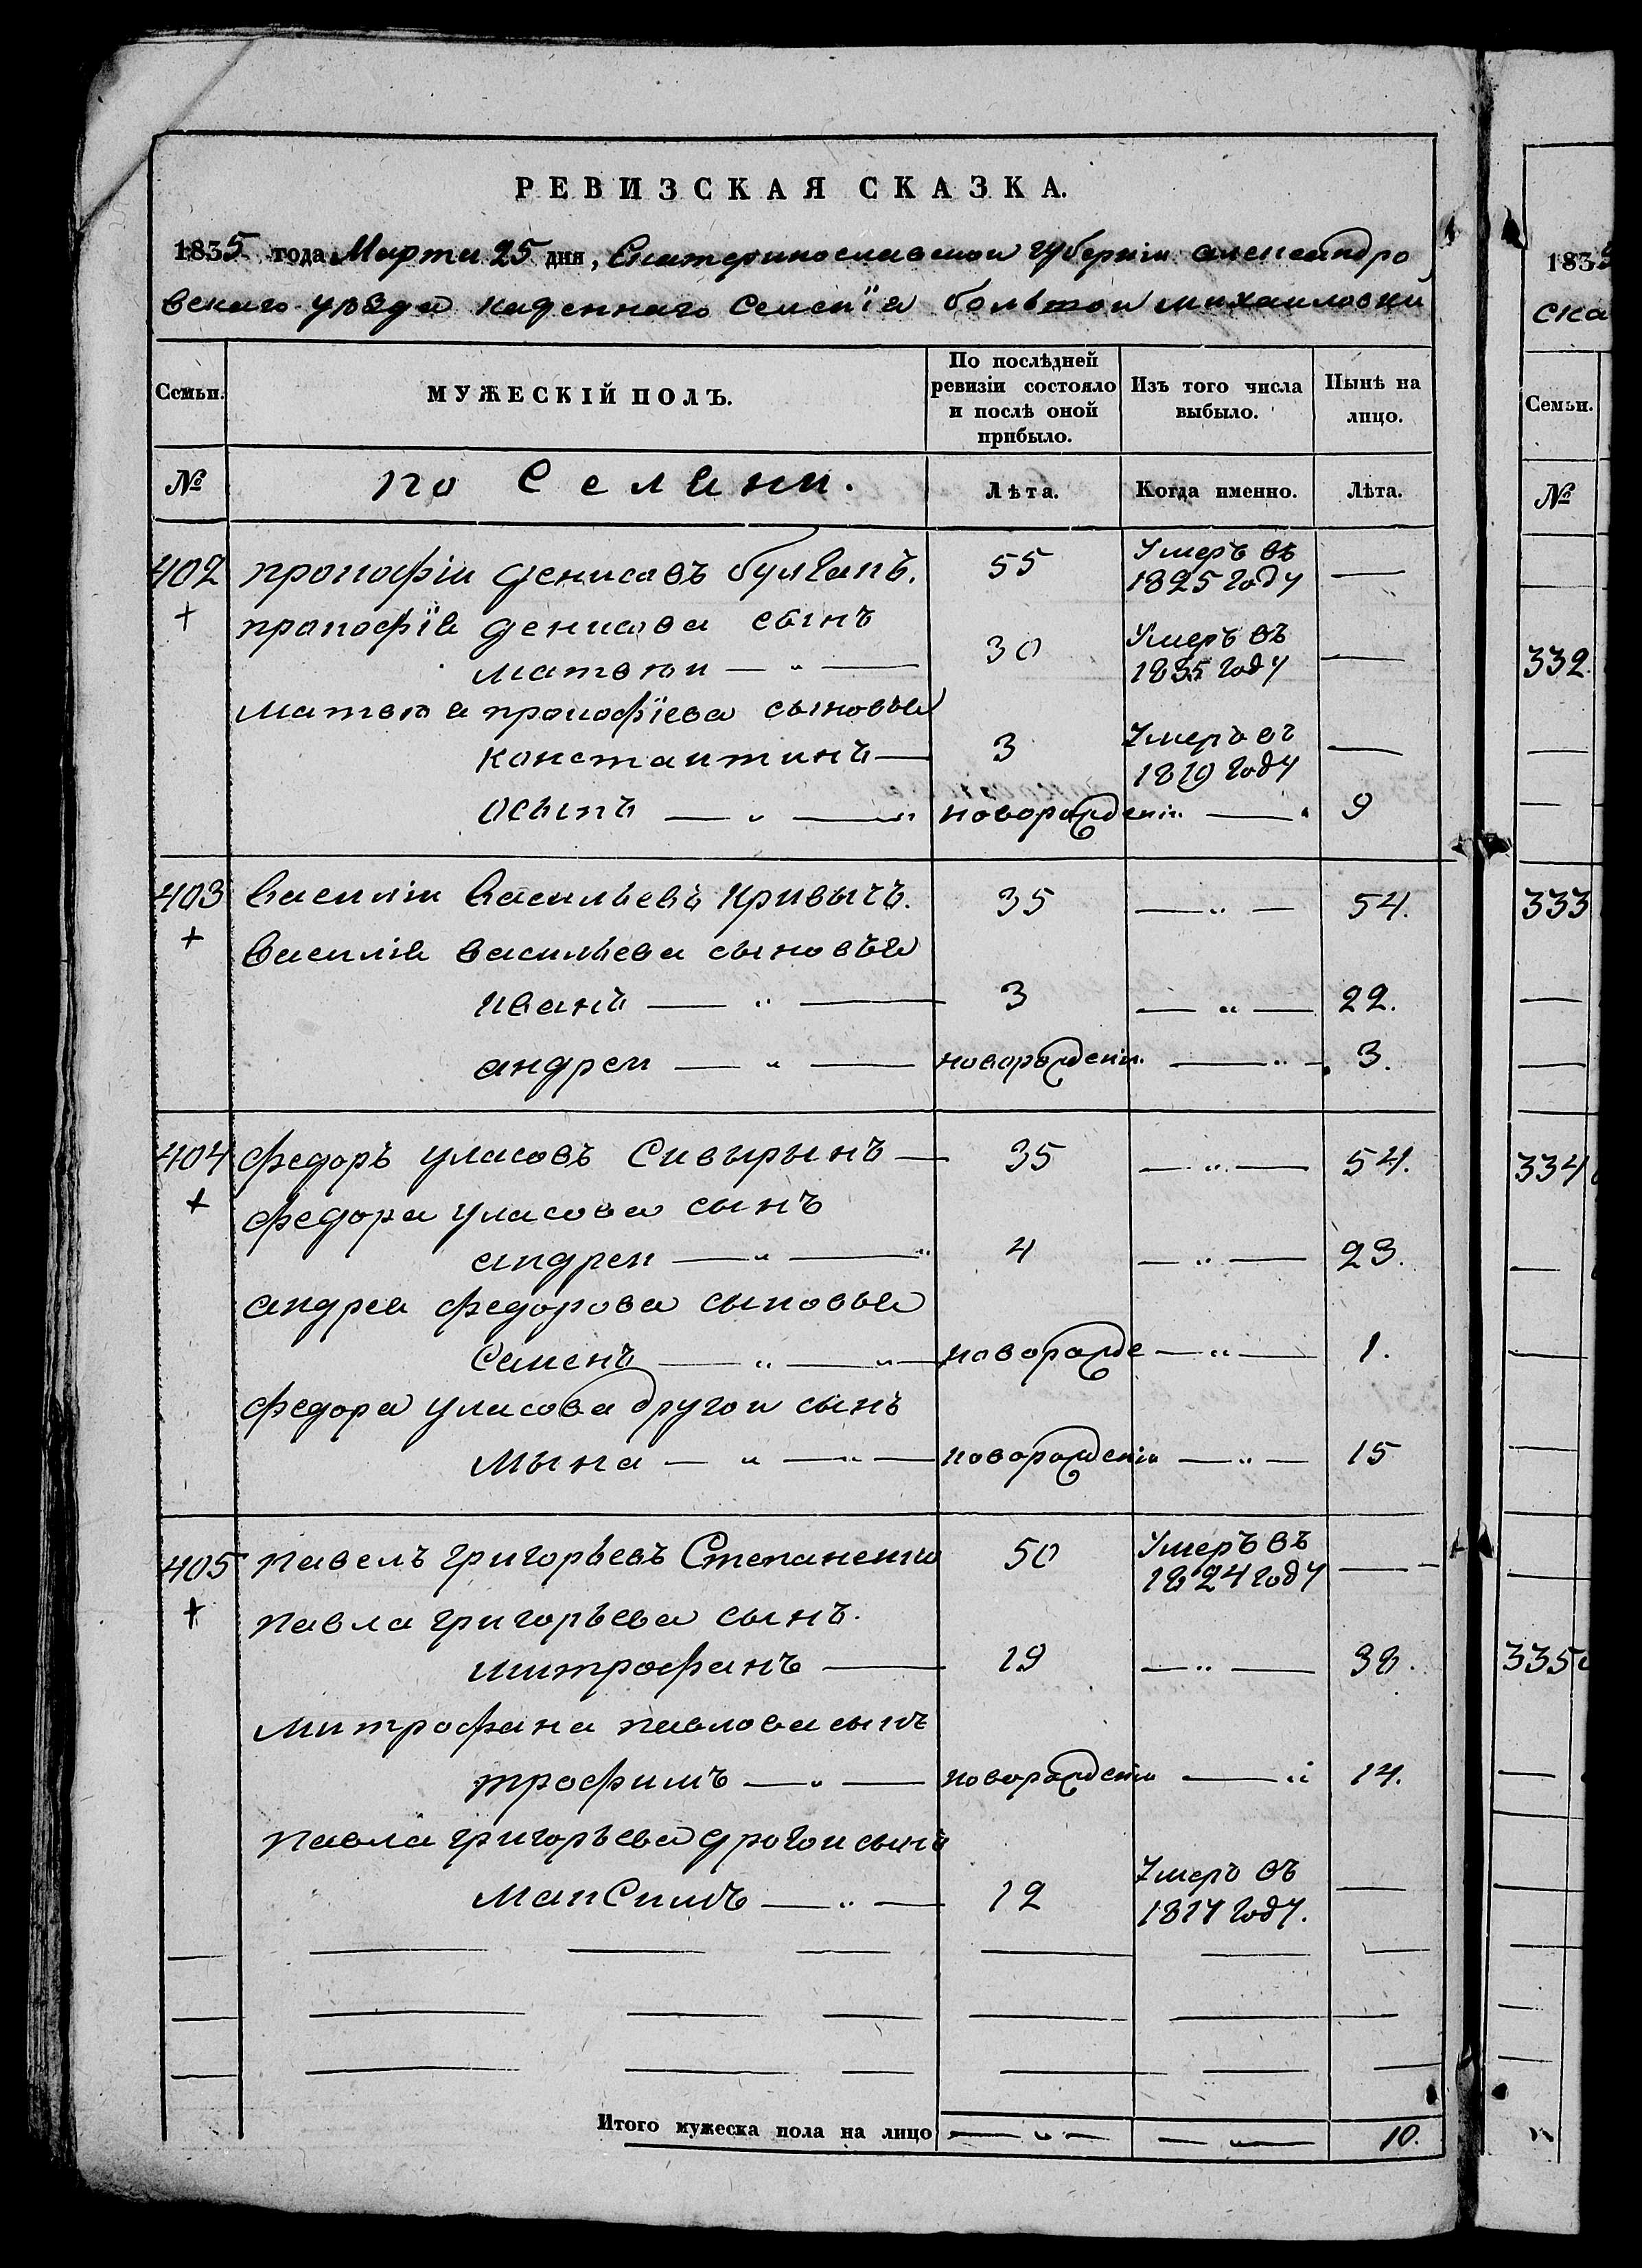 РЕВИЗСКАЯ СКАЗКА.
1835 года Марта 25 дня, Екатеринославскои губерніи александро
вскаго уѣзда казеннаго селенїа большои михаиловки
Семьи.
МУЖЕСКІЙ ПОЛЪ.
По послѣдней ревизіи состояло и послѣ оной прибыло.
Изъ того числа выбыло.
Нынѣ на лицо.
№
Лѣта.
Когда именно.
Лѣта.
402 прокофіи денисовъ 55 Умеръ въ 1825 году —
+ прокофїа денисова сынъ
матвѣи — „ — 30 Умеръ въ 1835 году —
матвѣа прокофїева сыновьа
константинъ — 3 Умеръ въ 1819 году —
осыпъ — „ — „ новорожденіи — 9
403 василіи васильевъ кривычъ. 35 — „ — 54.
+ василіа васильева сыновьа
иванъ — „ — 3 — „ — 22.
андреи — „ — новорожденіи. — „ — 3.
404 федоръ уласовъ Сивырынъ — 35 — „ — 54.
+ федора уласова сынъ
андреи — „ — „ 4 — „ — 23.
андреа федорова сыновьа
Семенъ — „ — „ — новорожде — „ — 1.
федора уласова другои сынъ
мына — „ — „ — новорожденіи — „ — 15
405 павелъ григорьевъ Степаненко 50 Умеръ въ 1824 году —
+ павла григорьева сынъ.
митрофанъ — 19 — „ — 38.
митрофана павлова сынъ
трофимъ — „ — новорождени — „ 14.
павла григорьева другои сынъ
максимъ — „ — 12 Умеръ въ 1817 году. —
Итого мужеска пола на лицо — „ — — „ — 10.
1835
ска
Семьи.
№
332
333
334
335